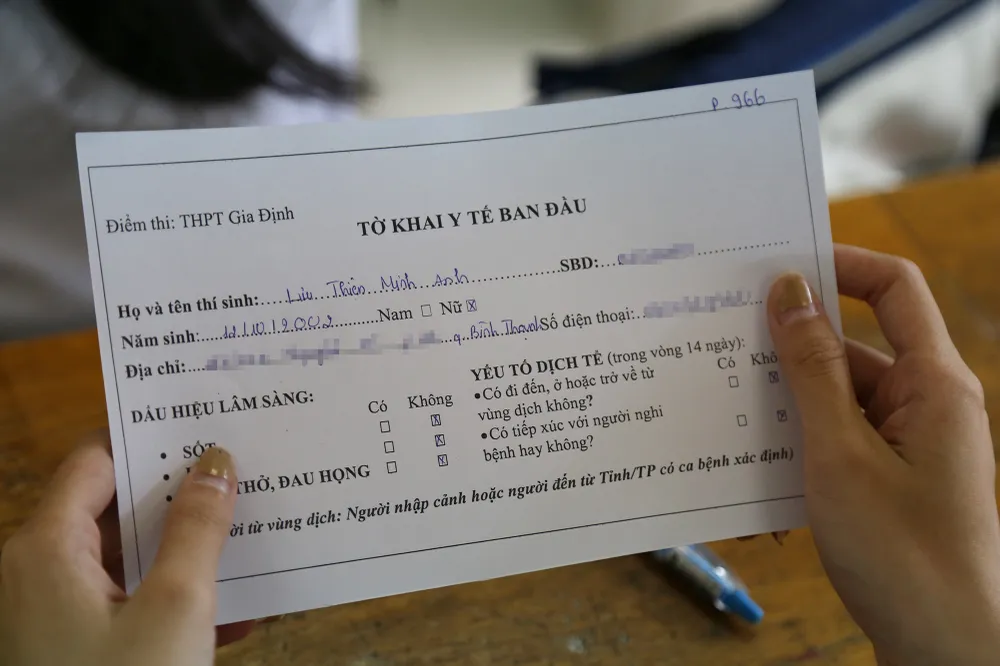 P 966
Điểm thi: THPT Gia Định
TỜ KHAI Y TẾ BAN ĐẦU
Họ và tên thí sinh:.....Lưu Thiên Minh Anh....................SBD:
Năm sinh:...11/10/2002............Nam ☐ Nữ ☒
Địa chỉ:.... q. Bình Thạnh Số điện thoại:
DẤU HIỆU LÂM SÀNG:
Có Không
• SỐT ☐ ☒
• ☐ ☒
• THỞ, ĐAU HỌNG ☐ ☒
YẾU TỐ DỊCH TỄ (trong vòng 14 ngày):
Có Khô
•Có đi đến, ở hoặc trở về từ ☐ ☒
vùng dịch không?
•Có tiếp xúc với người nghi ☐ ☒
bệnh hay không?
từ vùng dịch: Người nhập cảnh hoặc người đến từ Tỉnh/TP có ca bệnh xác định)